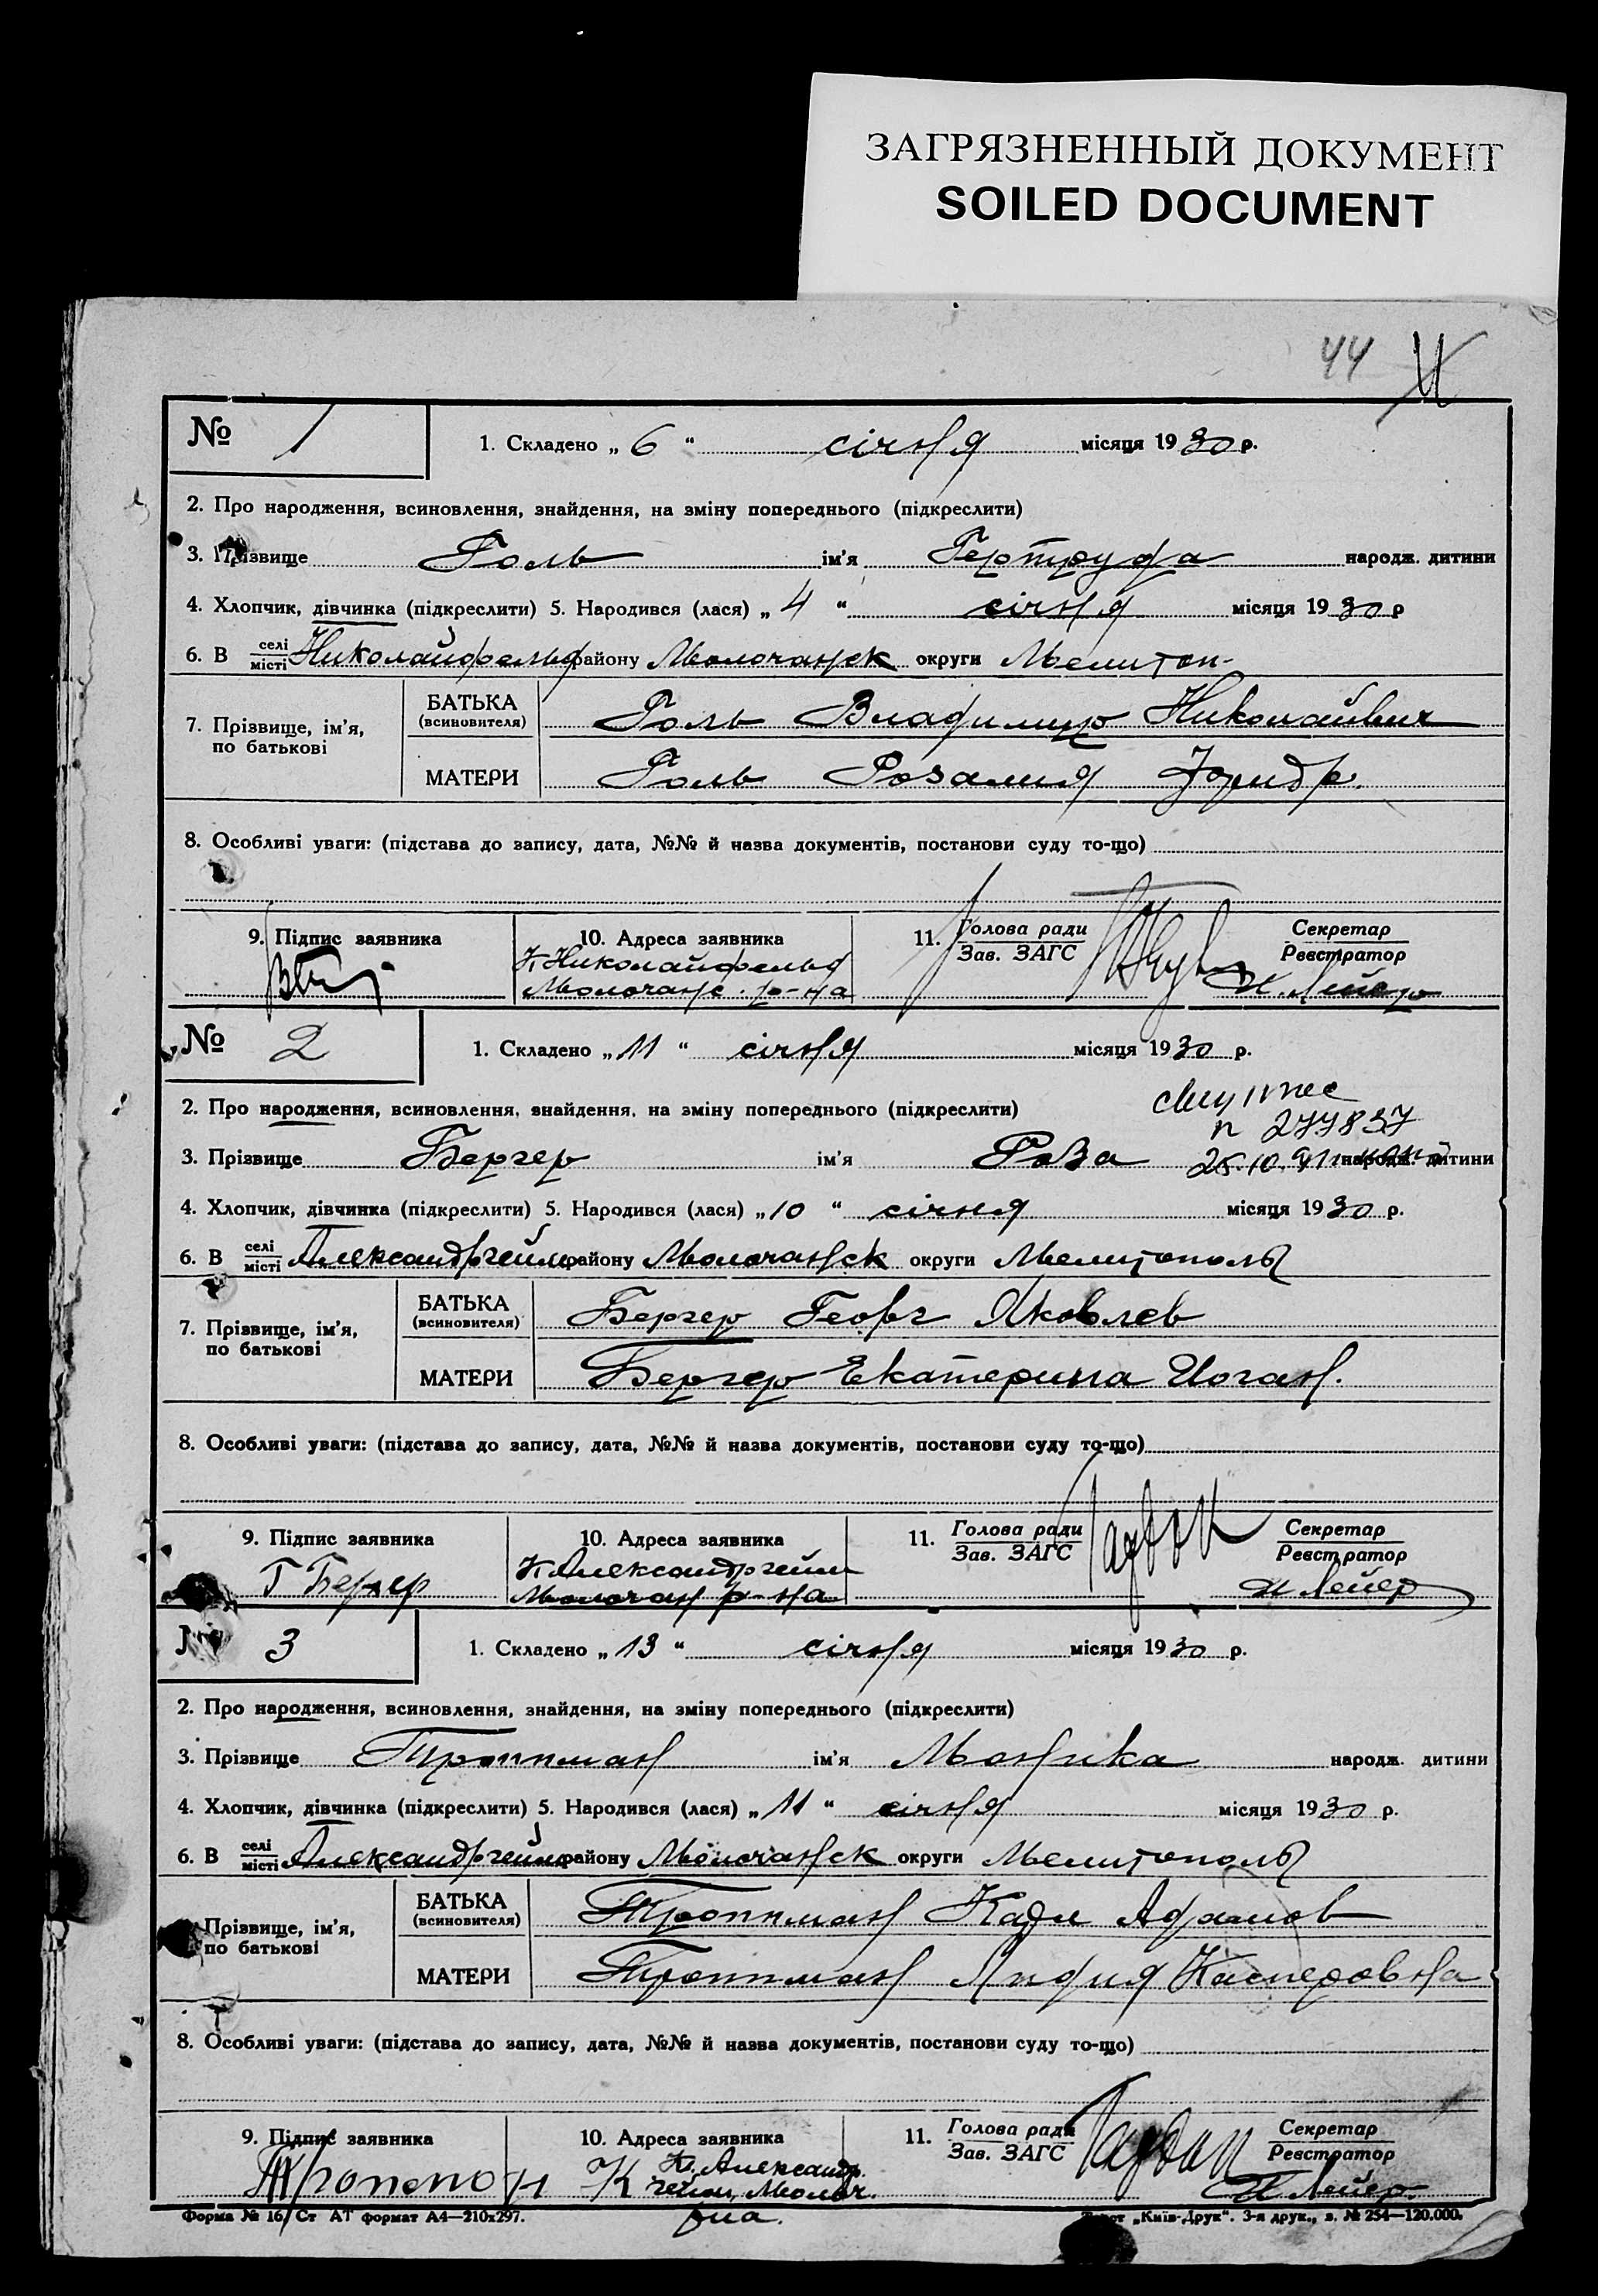 ЗАГРЯЗНЕННЫЙ ДОКУМЕНТ
SOILED DOCUMENT
44
№ 1
1. Складено „ 6 “ січня місяця 1930 р.
2. Про народження, всиновлення, знайдення, на зміну попереднього (підкреслити)
3. Прізвище Голь ім'я Гертруда народж. дитини
4. Хлопчик, дівчинка (підкреслити) 5. Народився (лася) „ 4 “ січня місяця 1930 р
6. В селі місті Николайфельд району Молочанск округи Мелитоп-
7. Прізвище, ім'я, по батькові
БАТЬКА (всиновителя) Голь Владимир Николайвич
МАТЕРИ Голь Розалия
8. Особливі уваги: (підстава до запису, дата, №№ й назва документів, постанови суду то-що)
9. Підпис заявника
10. Адреса заявника
К. Николайфельд
Молочанс. р-на
11. Голова ради Зав. ЗАГС
Секретар Реєстратор
И. Лейер
№ 2
1. Складено „ 11 “ січня місяця 1930 р.
2. Про народження, всиновлення, знайдення, на зміну попереднього (підкреслити)
n 277837
3. Прізвище Бергер ім'я Роза 25.10.91 народж. дитини
4. Хлопчик, дівчинка (підкреслити) 5. Народився (лася) „ 10 “ січня місяця 1930 р.
6. В селі місті Александргейм району Молочанск округи Мелитополь
7. Прізвище, ім'я, по батькові
БАТЬКА (всиновителя) Бергер Георг Яковлев
МАТЕРИ Бергер Екатерина Иоган.
8. Особливі уваги: (підстава до запису, дата, №№ й назва документів, постанови суду то-що)
9. Підпис заявника
Г Бергер
10. Адреса заявника
К. Александргейм
Молочан р-на
11. Голова ради Зав. ЗАГС
Секретар Реєстратор
И Лейер
№ 3
1. Складено „ 13 “ січня місяця 1930 р.
2. Про народження, всиновлення, знайдення, на зміну попереднього (підкреслити)
3. Прізвище Троппман ім'я Моника народж. дитини
4. Хлопчик, дівчинка (підкреслити) 5. Народився (лася) „ 11 “ січня місяця 1930 р.
6. В селі місті Александргейм району Молочанск округи Мелитополь
Прізвище, ім'я, по батькові
БАТЬКА (всиновителя) Троппман Карл Адамов
МАТЕРИ Троппман Лидия Касперовна
8. Особливі уваги: (підстава до запису, дата, №№ й назва документів, постанови суду то-що)
9. Підпис заявника
10. Адреса заявника
К. Александр.
гейм, Молоч.
рна.
11. Голова ради Зав. ЗАГС
Секретар Реєстратор
И Лейер.
Форма № 16, Ст АТ формат А4—210х297.
Трест „Київ-Друк“. 3-я друк., з. № 254—120.000.